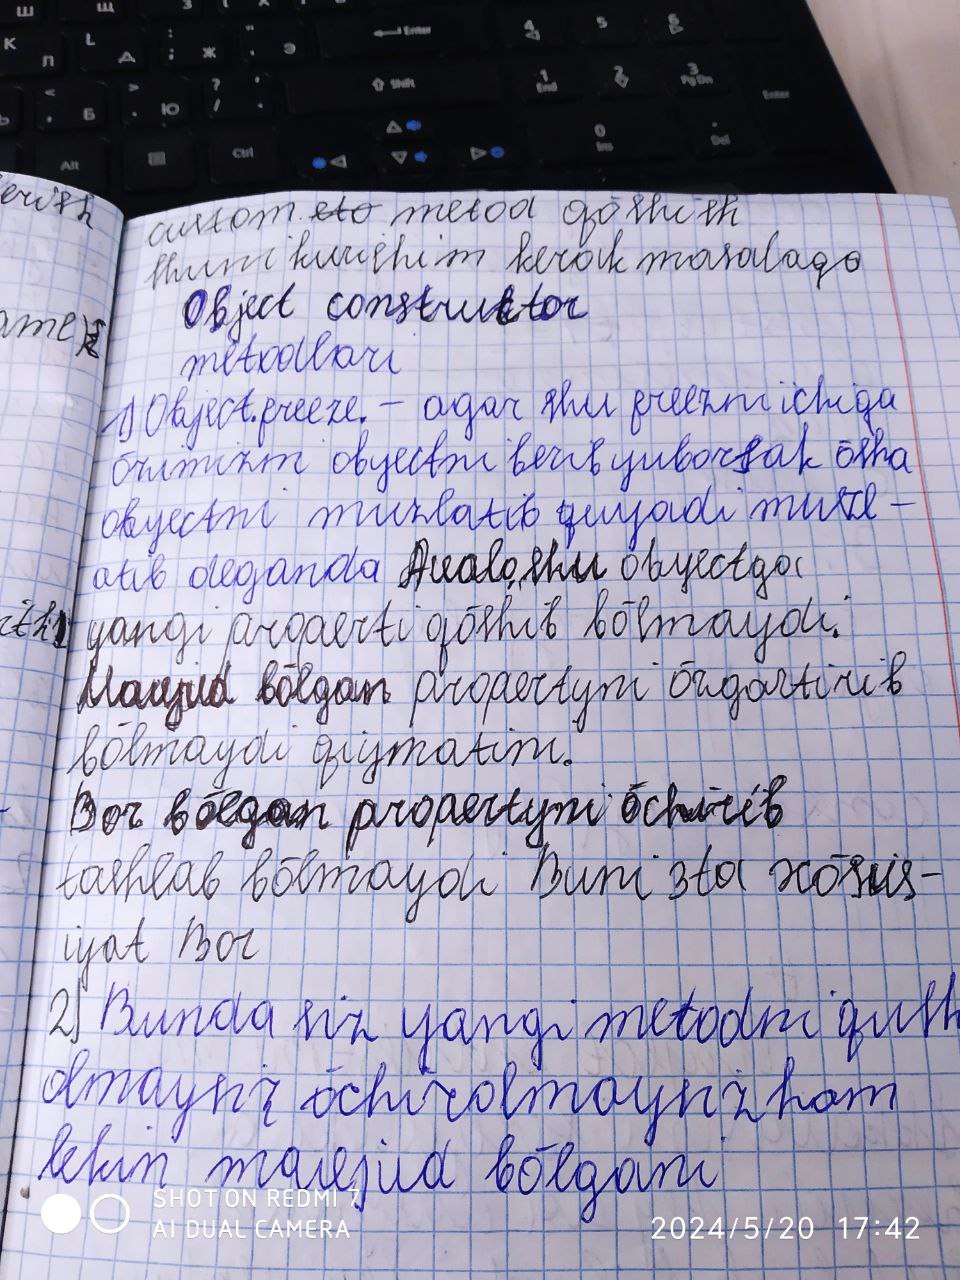 Ш
Ш
З
К
Л
L
Д
;
Ж
"
Э
Enter
4
5
6
<
Б
>
Ю
?
/
Shift
1
End
2
3
Pg Dn
Enter
Alt
Ctrl
0
Ins
.
Del
erish
custom eto metod qōshish
shuni kurishim kerak masalaga
ame)
Object constructor
metodlari
1) Object.freeze. – agar shu freezni ichiga
ōzimizni obyectni berib yuborsak ōsha
obyectni muzlatib quyadi muzl-
atib deganda Avalo, shu obyectga
yangi properti qōshib bōlmaydi.
Mavjud bōlgan propertyni ōzgartirib
bōlmaydi qiymatini.
Bor bōlgan propertyni ōchirib
tashlab bōlmaydi Buni 3ta xōsus-
iyat Bor
2) Bunda siz yangi metodni qush
olmaysiz ōchirolmaysiz ham
lekin mavjud bōlgani
SHOT ON REDMI 7
AI DUAL CAMERA
2024/5/20 17:42